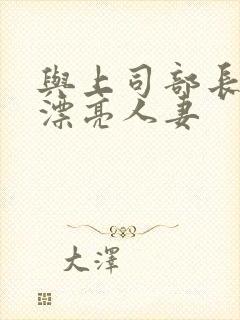 與上司部長
漂亮人妻
大澤